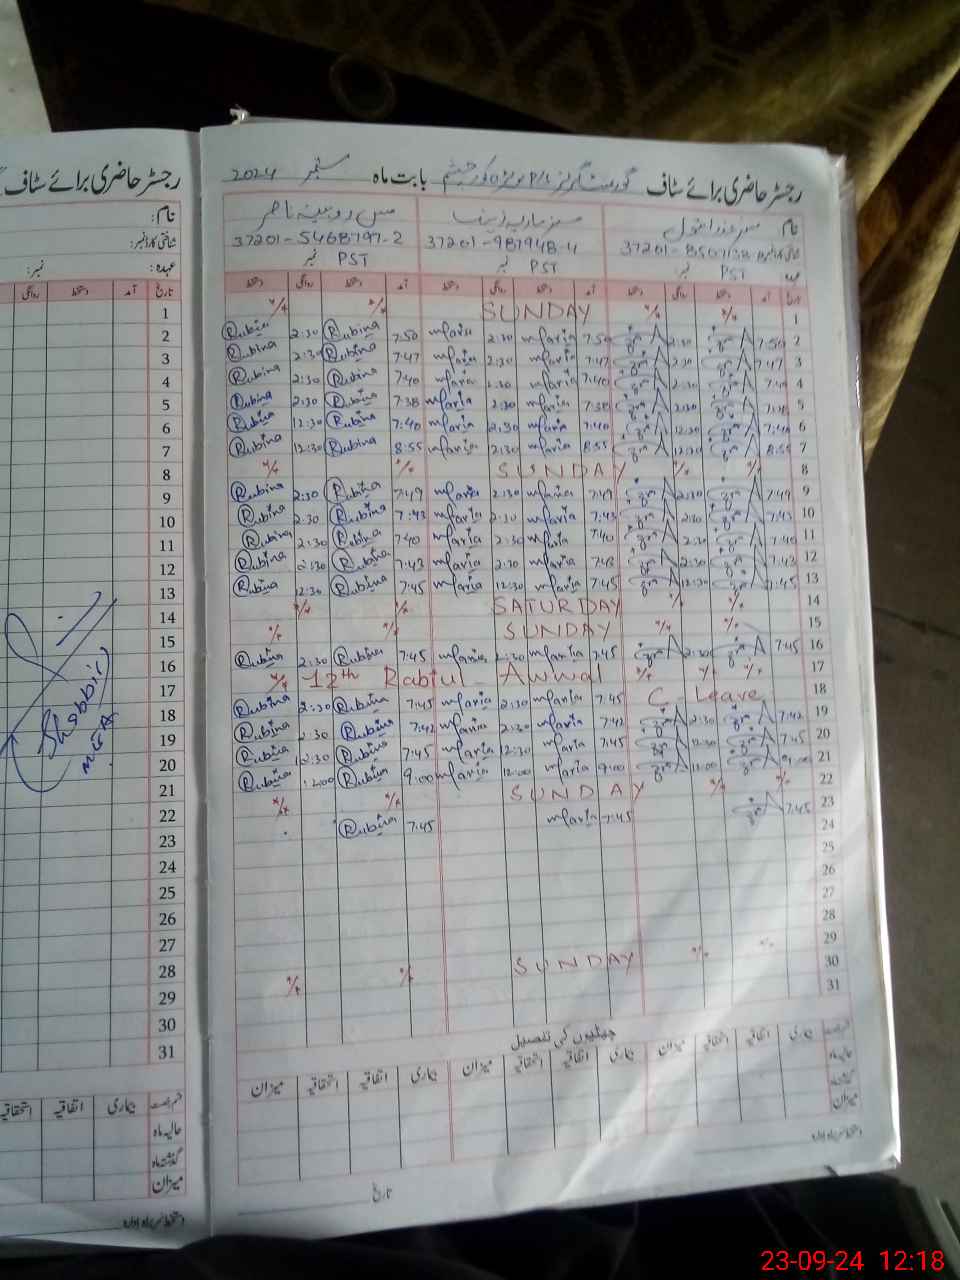 رجسٹر حاضری برائے سٹاف گورنمنٹ گرلز P/S بابت ماہ ستمبر 2024
نام: مس روبینہ ناصر
37201-5468797-2 37201-981948-4
نمبر PST نمبر PST نمبر PST
تاریخ آمد دستخط روانگی دستخط آمد دستخط روانگی دستخط آمد دستخط روانگی دستخط
1 SUNDAY
2 7:50 2:30 7:50 maria 2:30 maria 7:50 Rubina 2:30 Rubina
3 7:47 2:30 7:47 maria 2:30 maria 7:47 Rubina 2:30 Rubina
4 7:40 2:30 7:40 maria 2:30 maria 7:40 Rubina 2:30 Rubina
5 7:38 2:30 7:38 maria 2:30 maria 7:38 Rubina 2:30 Rubina
6 7:40 12:30 7:40 maria 2:30 maria 7:40 Rubina 12:30 Rubina
7 8:55 12:30 8:55 maria 2:30 maria 8:55 Rubina 12:30 Rubina
8 SUNDAY
9 7:49 2:30 7:49 maria 2:30 maria 7:49 Rubina 2:30 Rubina
10 7:43 2:30 7:43 maria 2:30 maria 7:43 Rubina 2:30 Rubina
11 7:40 2:30 7:40 maria 2:30 maria 7:40 Rubina 2:30 Rubina
12 7:43 2:30 7:43 maria 2:30 maria 7:43 Rubina 2:30 Rubina
13 12:30 7:45 maria 12:30 maria 7:45 Rubina 12:30 Rubina
14 SATURDAY
15 SUNDAY
16 7:45 2:30 7:45 maria 2:30 maria 7:45 Rubina 2:30 Rubina
17 12th Rabiul-Awwal
18 C- Leave 7:45 maria 2:30 maria 7:45 Rubina 2:30 Rubina
19 7:42 2:30 7:42 maria 2:30 maria 7:42 Rubina 2:30 Rubina
20 7:45 12:30 7:45 maria 12:30 maria 7:45 Rubina 12:30 Rubina
21 9:00 12:00 9:00 maria 12:00 maria 9:00 Rubina Rubina
22 SUNDAY
23 7:45 7:45 maria 7:45 Rubina
24
25
26
27
28
29 SUNDAY
30
31
چھٹیوں کی تفصیل
بیماری اتفاقیہ استحقاقیہ میزان بیماری اتفاقیہ استحقاقیہ میزان بیماری اتفاقیہ استحقاقیہ میزان
حالیہ ماہ
گذشتہ ماہ
میزان
دستخط سربراہ ادارہ
تاریخ
رجسٹر حاضری برائے سٹاف
نام:
شناختی کارڈ نمبر:
عہدہ: نمبر:
تاریخ آمد دستخط روانگی
1
2
3
4
5
6
7
8
9
10
11
12
13
14
15
16
17
18
19
20
21
22
23
24
25
26
27
28
29
30
31
Shabbir
MEA
قسم رخصت بیماری اتفاقیہ استحقاقیہ
حالیہ ماہ
گذشتہ ماہ
میزان
دستخط سربراہ ادارہ
23-09-24 12:18